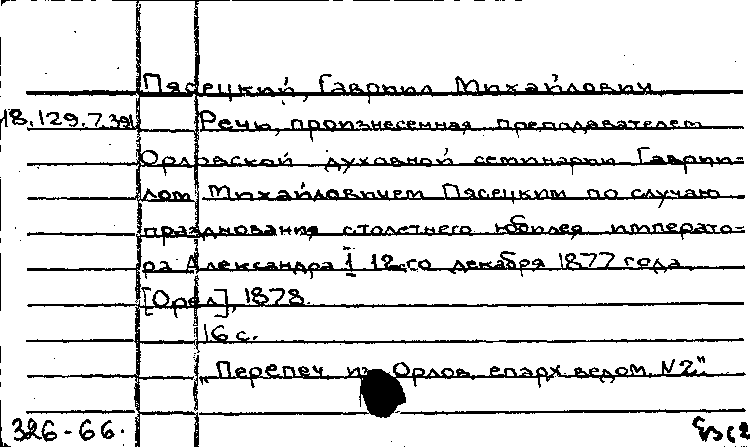 Пясецкий, Гавриил Михайлович
18.129.7.391 Речь, произнесенная преподавателем
Орловской духовной семинарии Гаврии-
лом Михайловичем Пясецким по случаю
празднования столетнего юбилея императо-
ра Александра I 12го декабря 1877 года.
[Орел], 1878.
16 с.
"Перепеч из Орлов. епарх ведом. N2."
326-66.